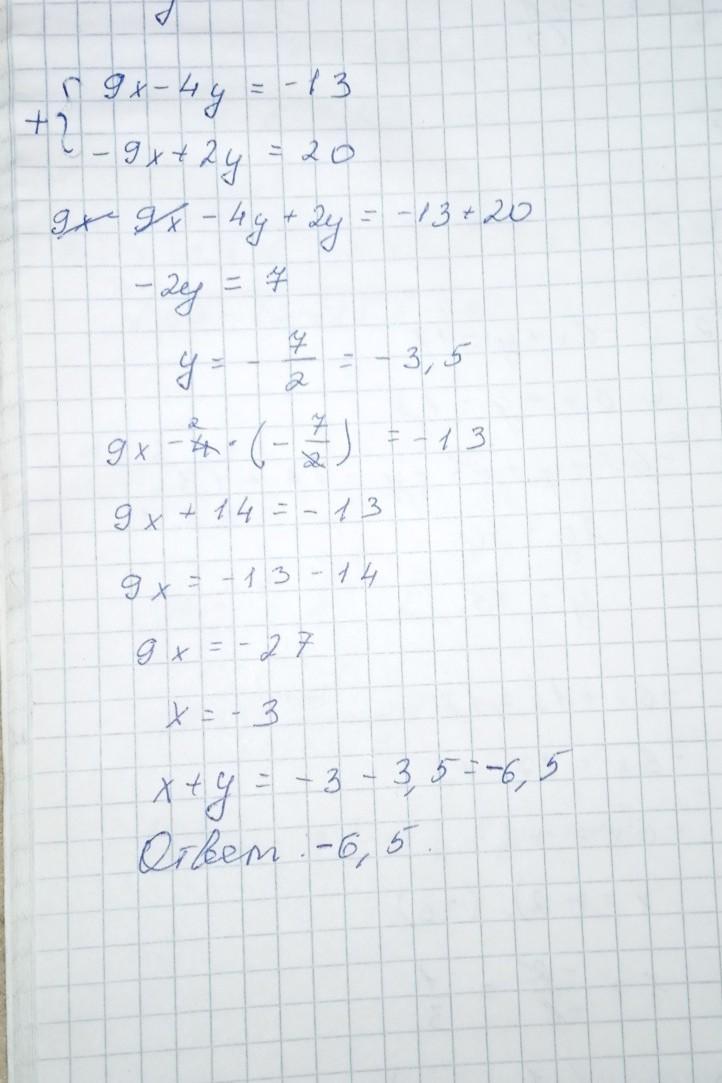 9x - 4y = -13
+{
-9x + 2y = 20
9x - 9x - 4y + 2y = -13 + 20
-2y = 7
y = - 7/2 = -3,5
9x - 4 2 · (- 7/2) = -13
9x + 14 = -13
9x = -13 - 14
9x = -27
x = -3
x + y = -3 - 3,5 = -6,5
Ответ: -6,5.